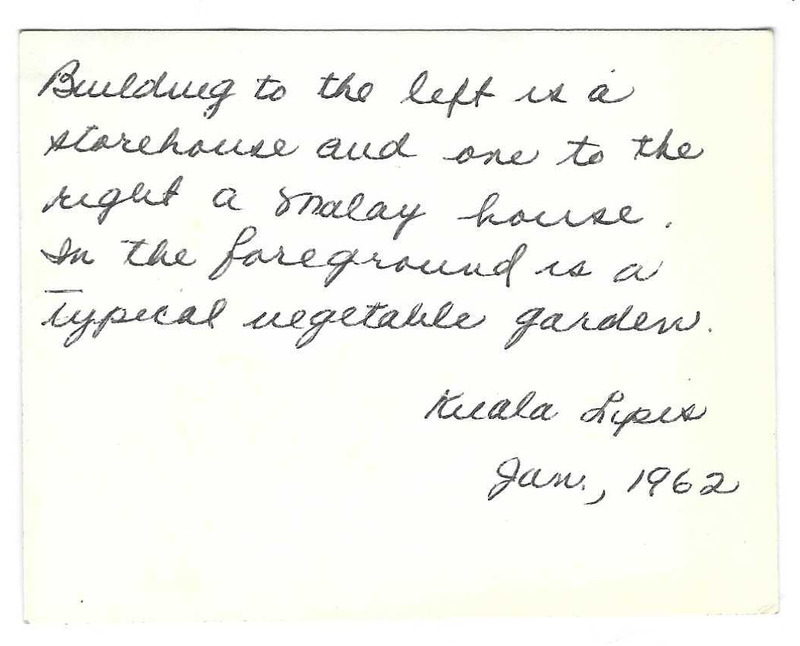 Building to the left is a
storehouse and one to the
right a Malay house.
In the foreground is a
typical vegetable garden.
Kuala Lipis
Jan., 1962